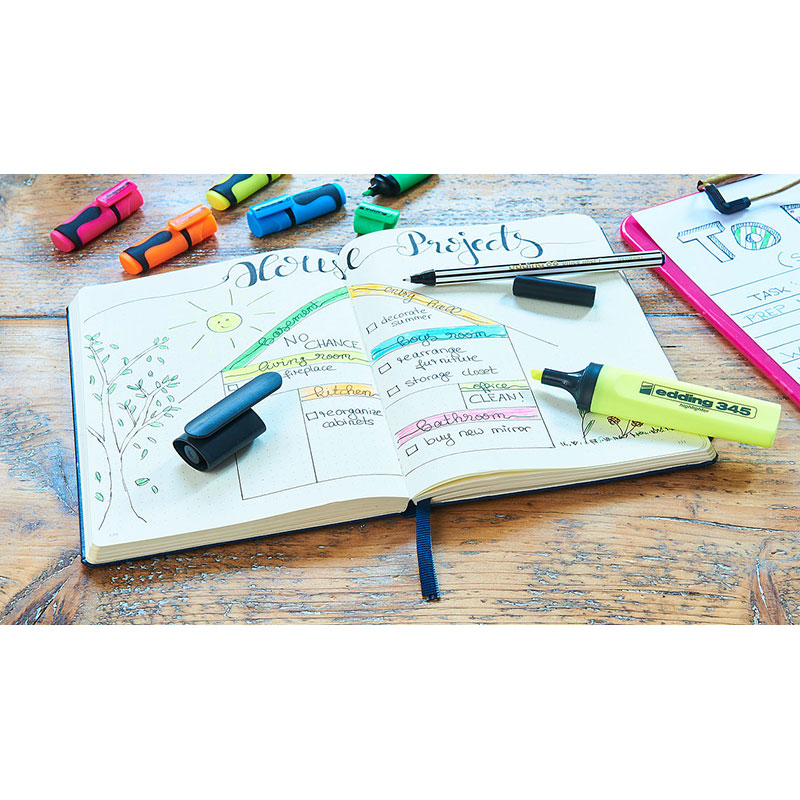 House Projects
Basement
NO
CHANCE
living room
fireplace
kitchen
reorganize
cabinets
entry hall
decorate
summer
boys room
rearrange
furniture
storage closet
office
CLEAN!
bathroom
buy new mirror
edding 345
highlighter
TO
TASK
PREP